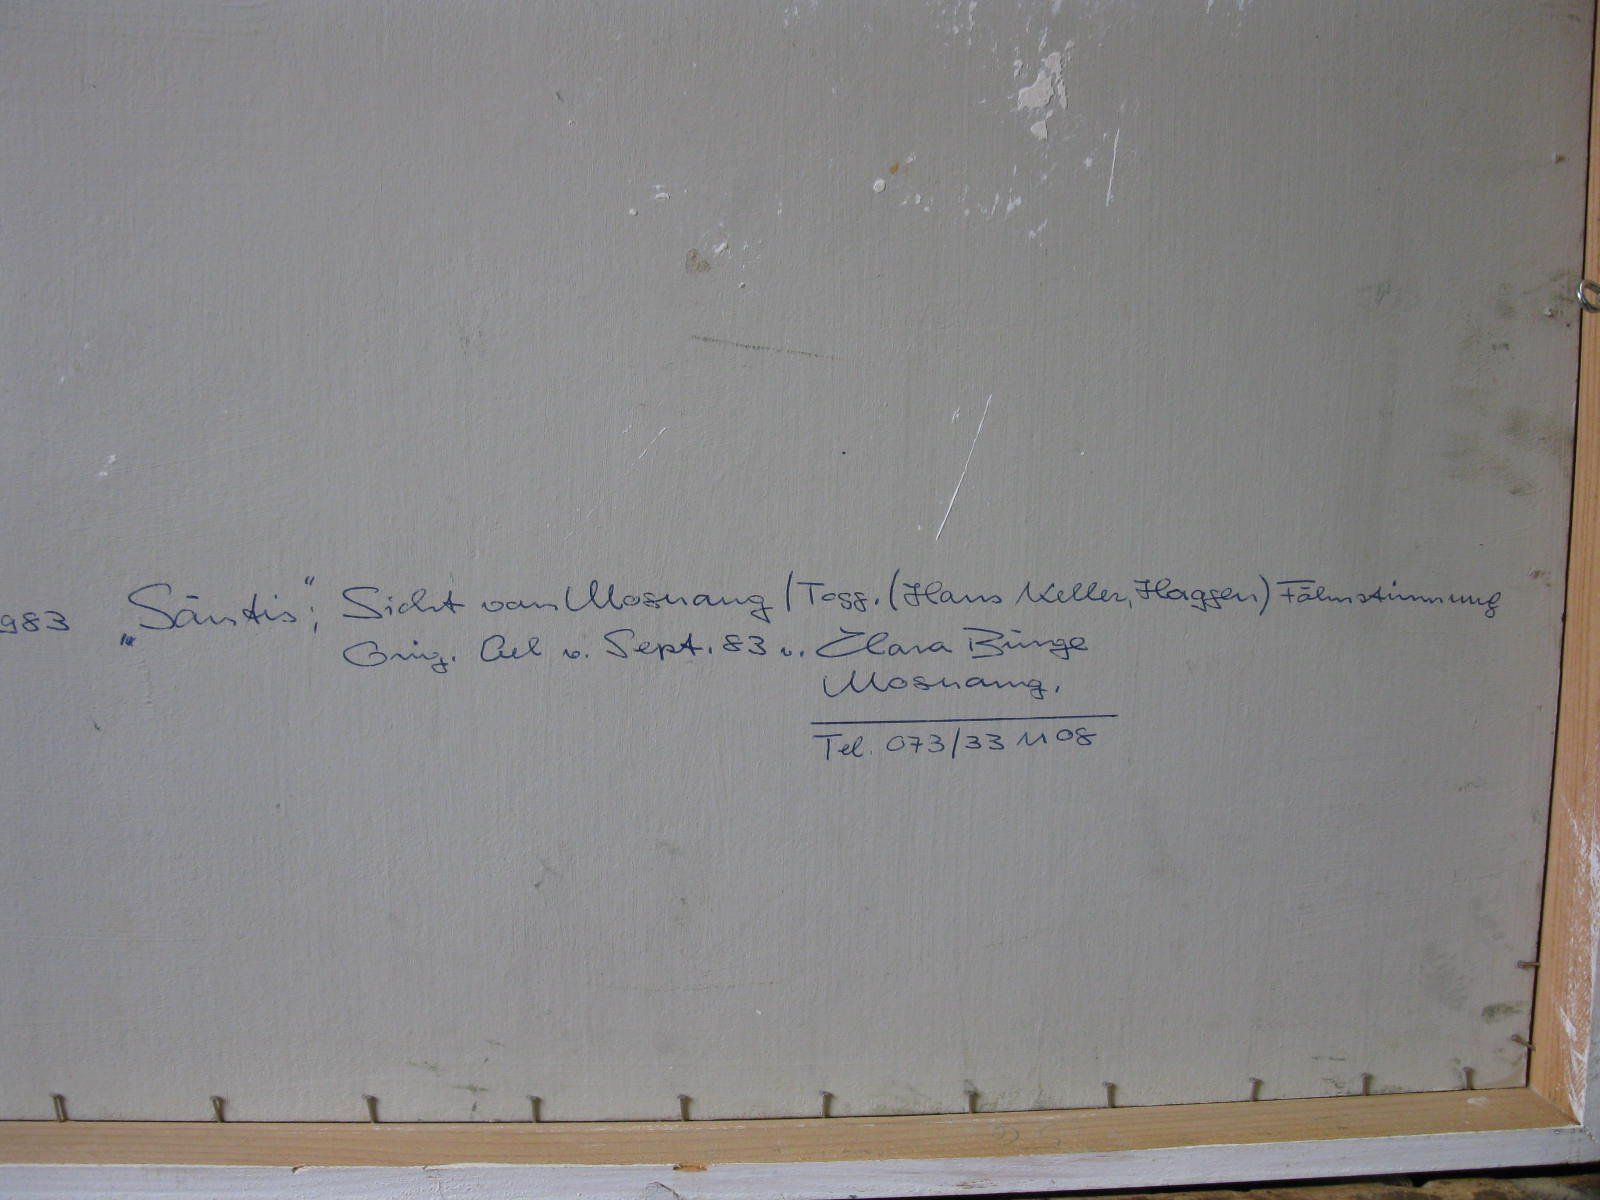 983 „Säntis“; Sicht von Mosnang / Togg. (Hans Keller, Haggen) Föhnstimmung
Orig. Oel v. Sept. 83 v. Clara Bürge
Mosnang.
Tel. 073/33 11 08